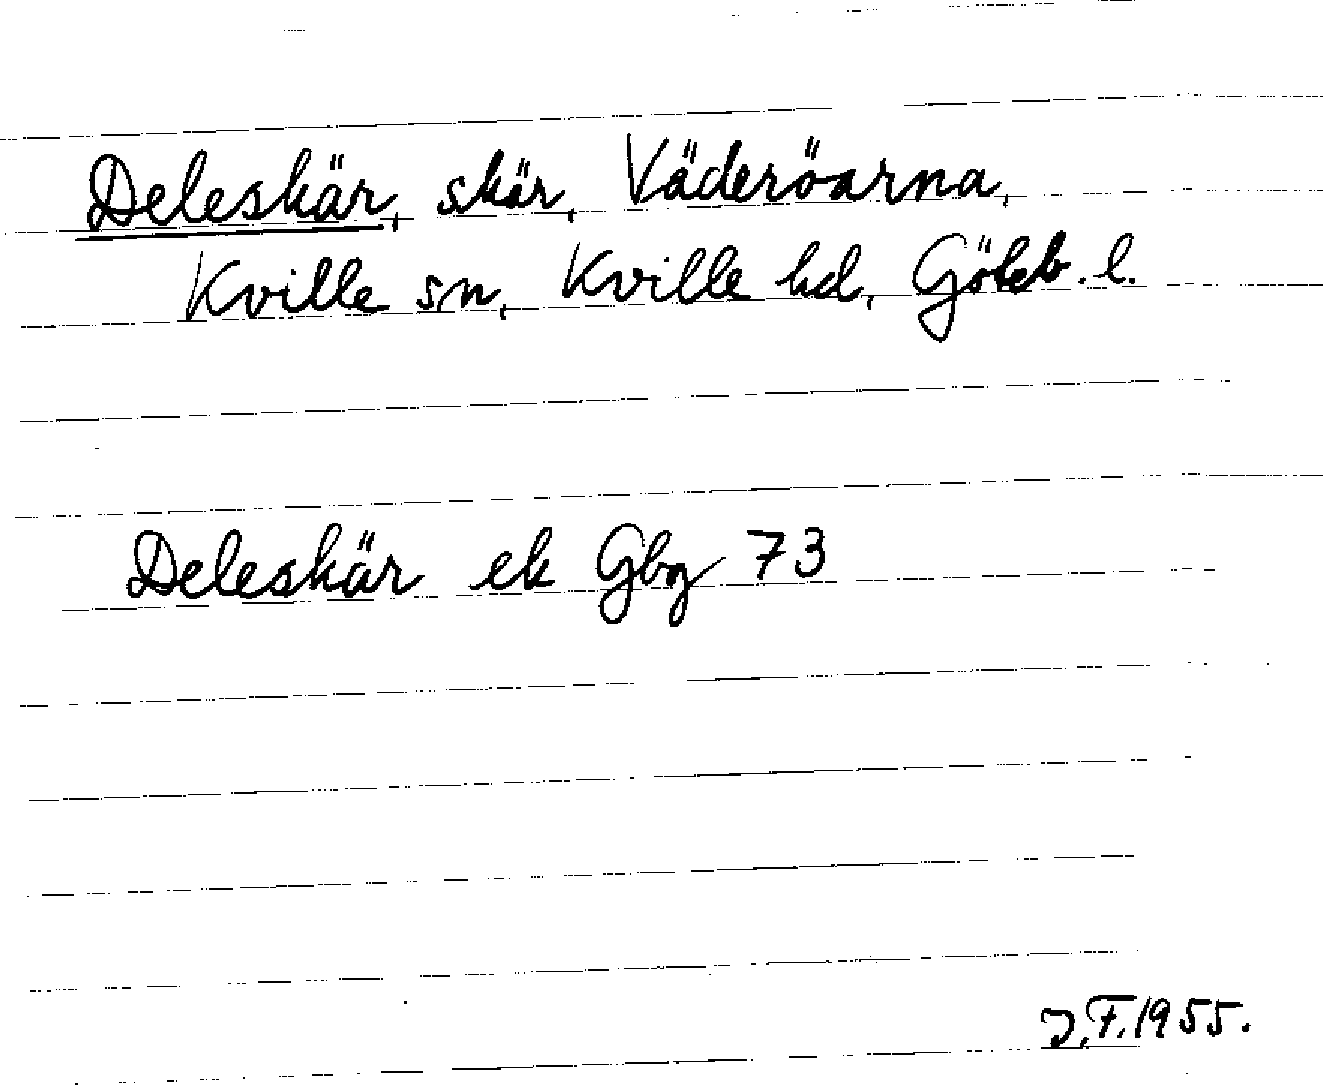 Deleskär, skär, Väderöarna,
Kville sn, Kville hd, Göteb. l.
Deleskär ek Gbg 73
J.F. 1955.